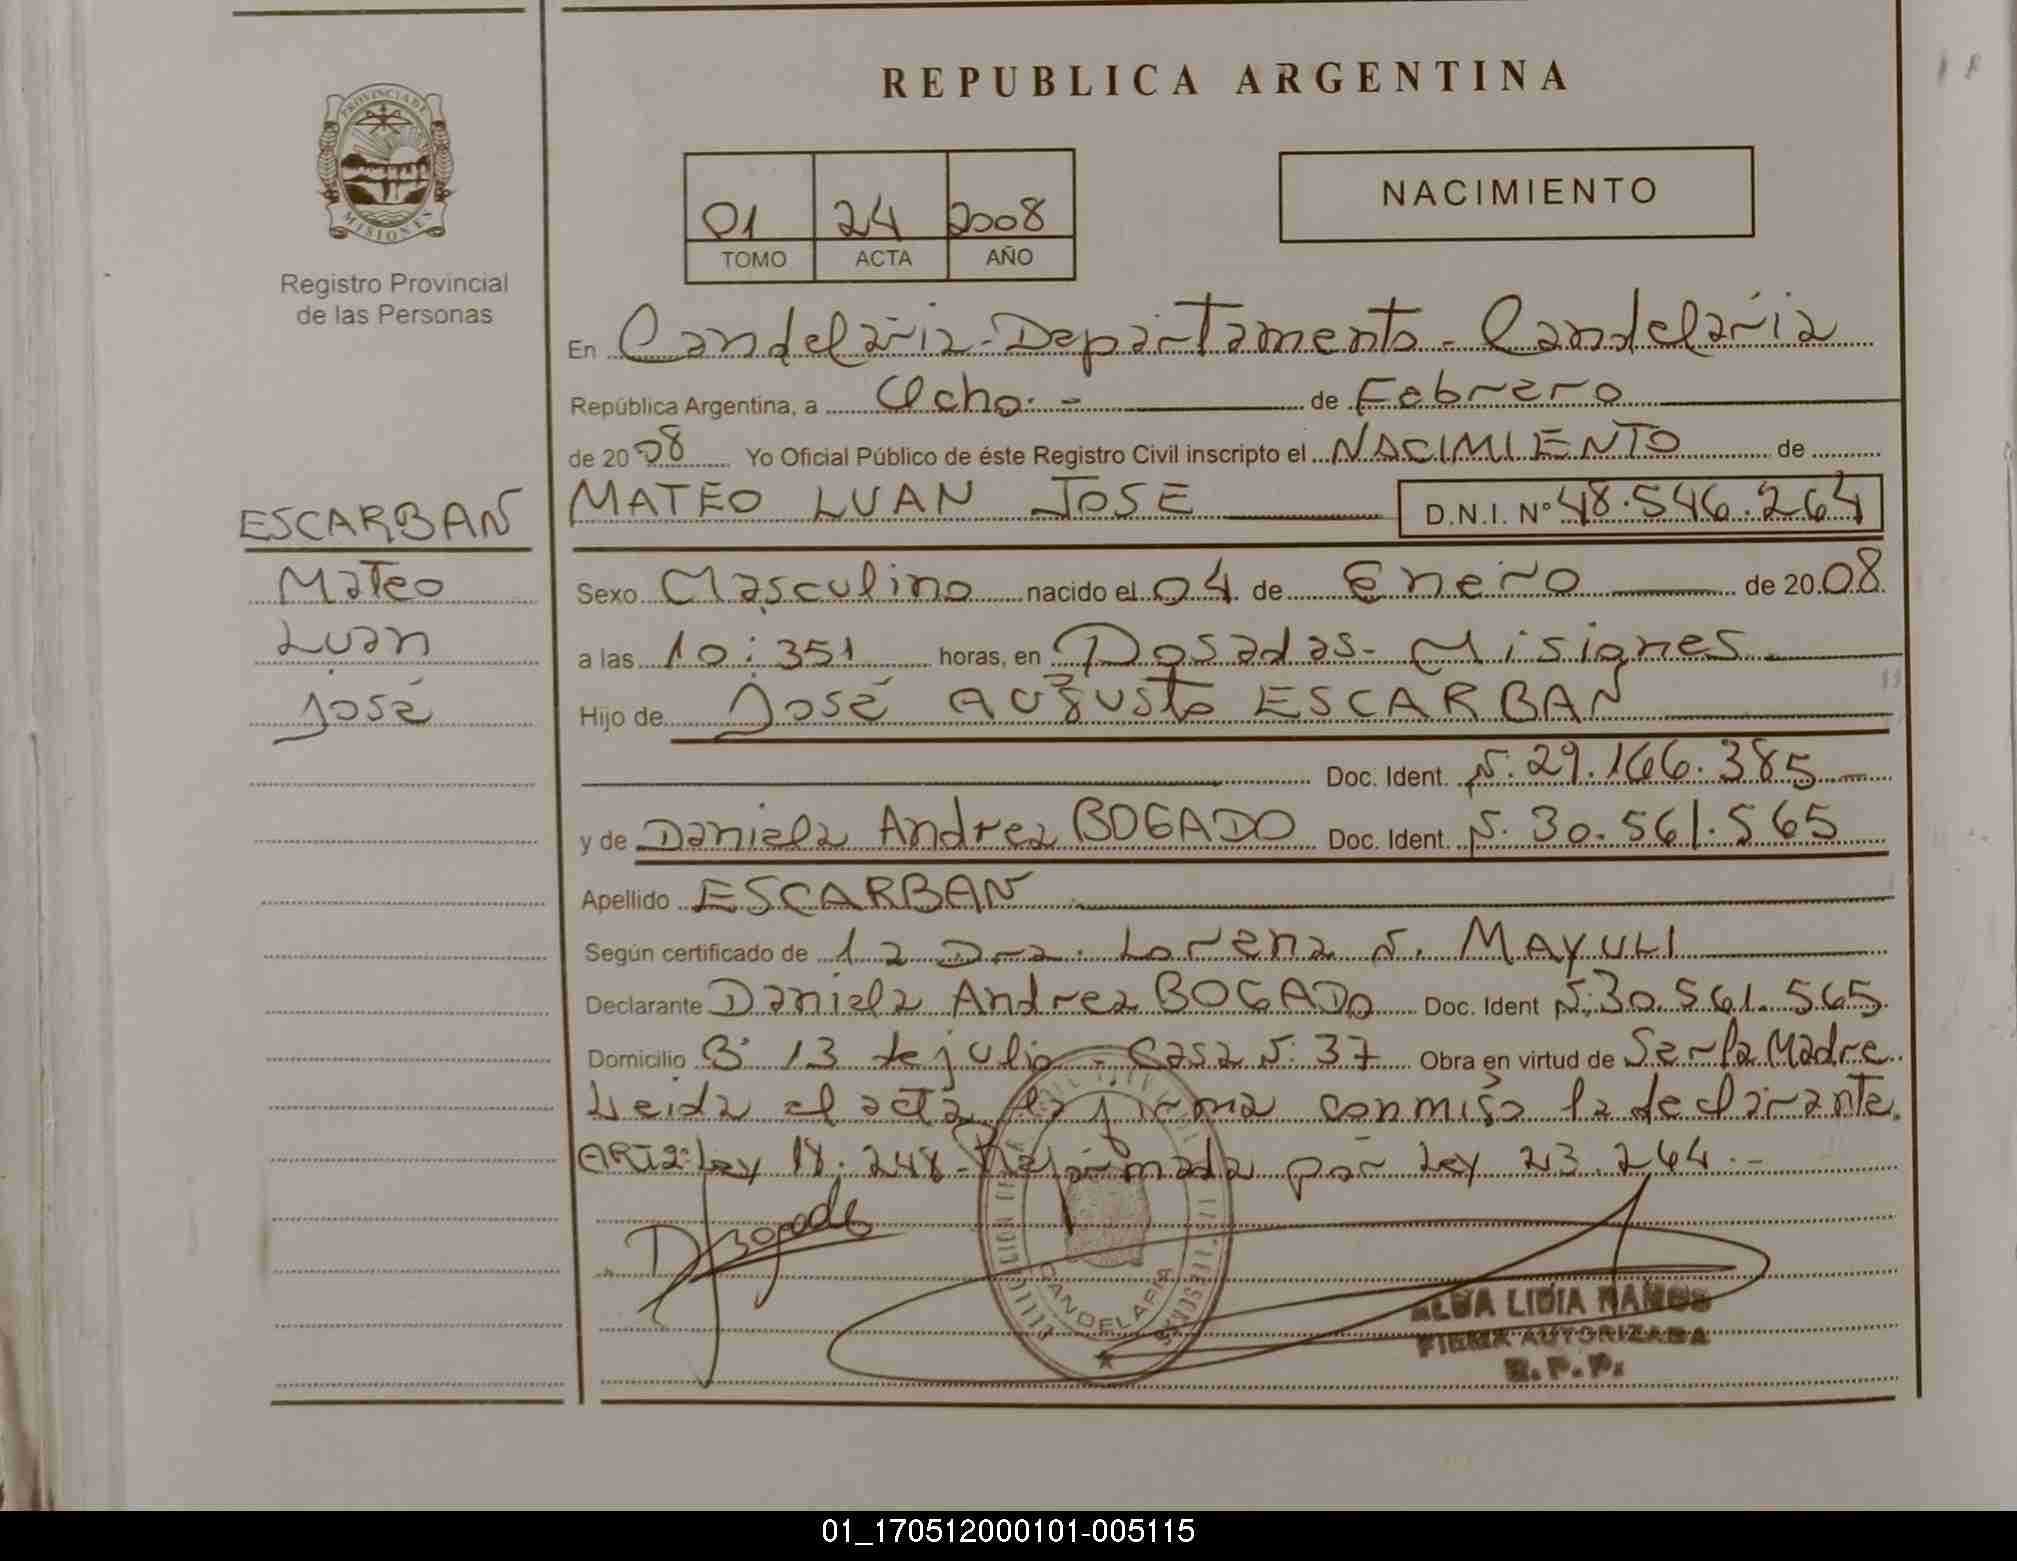 REPUBLICA ARGENTINA
PROVINCIA DE
MISIONES
Registro Provincial
de las Personas
01 24 2008
TOMO ACTA AÑO
NACIMIENTO
En Candelaria - Departamento - Candelaria
República Argentina, a Ocho - de Febrero
de 2008 Yo Oficial Público de éste Registro Civil inscripto el NACIMIENTO de
MATEO LUAN JOSE D.N.I. Nº 48.546.264
ESCARBAN
Mateo
Luan
José
Sexo Masculino nacido el 04 de Enero de 2008
a las 10:351 horas, en Posadas - Misiones
Hijo de José Augusto ESCARBAN
Doc. Ident. N: 29.166.385
y de Daniela Andrea BOGADO Doc. Ident. N. 30.561.565
Apellido ESCARBAN
Según certificado de la Dra. Lorena N. MAYULI
Declarante Daniela Andrea BOGADO Doc. Ident N: 30.561.565
Domicilio Bº 13 de julio - Casa N: 37 Obra en virtud de Ser la Madre
Leida el acta la firma conmigo la declarante.
ART 2: Ley 18.248 - Reformada por Ley 23.264.-
DBogado
CANDELARIA
ALBA LIDIA RAMOS
FIRMA AUTORIZADA
R.P.P.
01_170512000101-005115